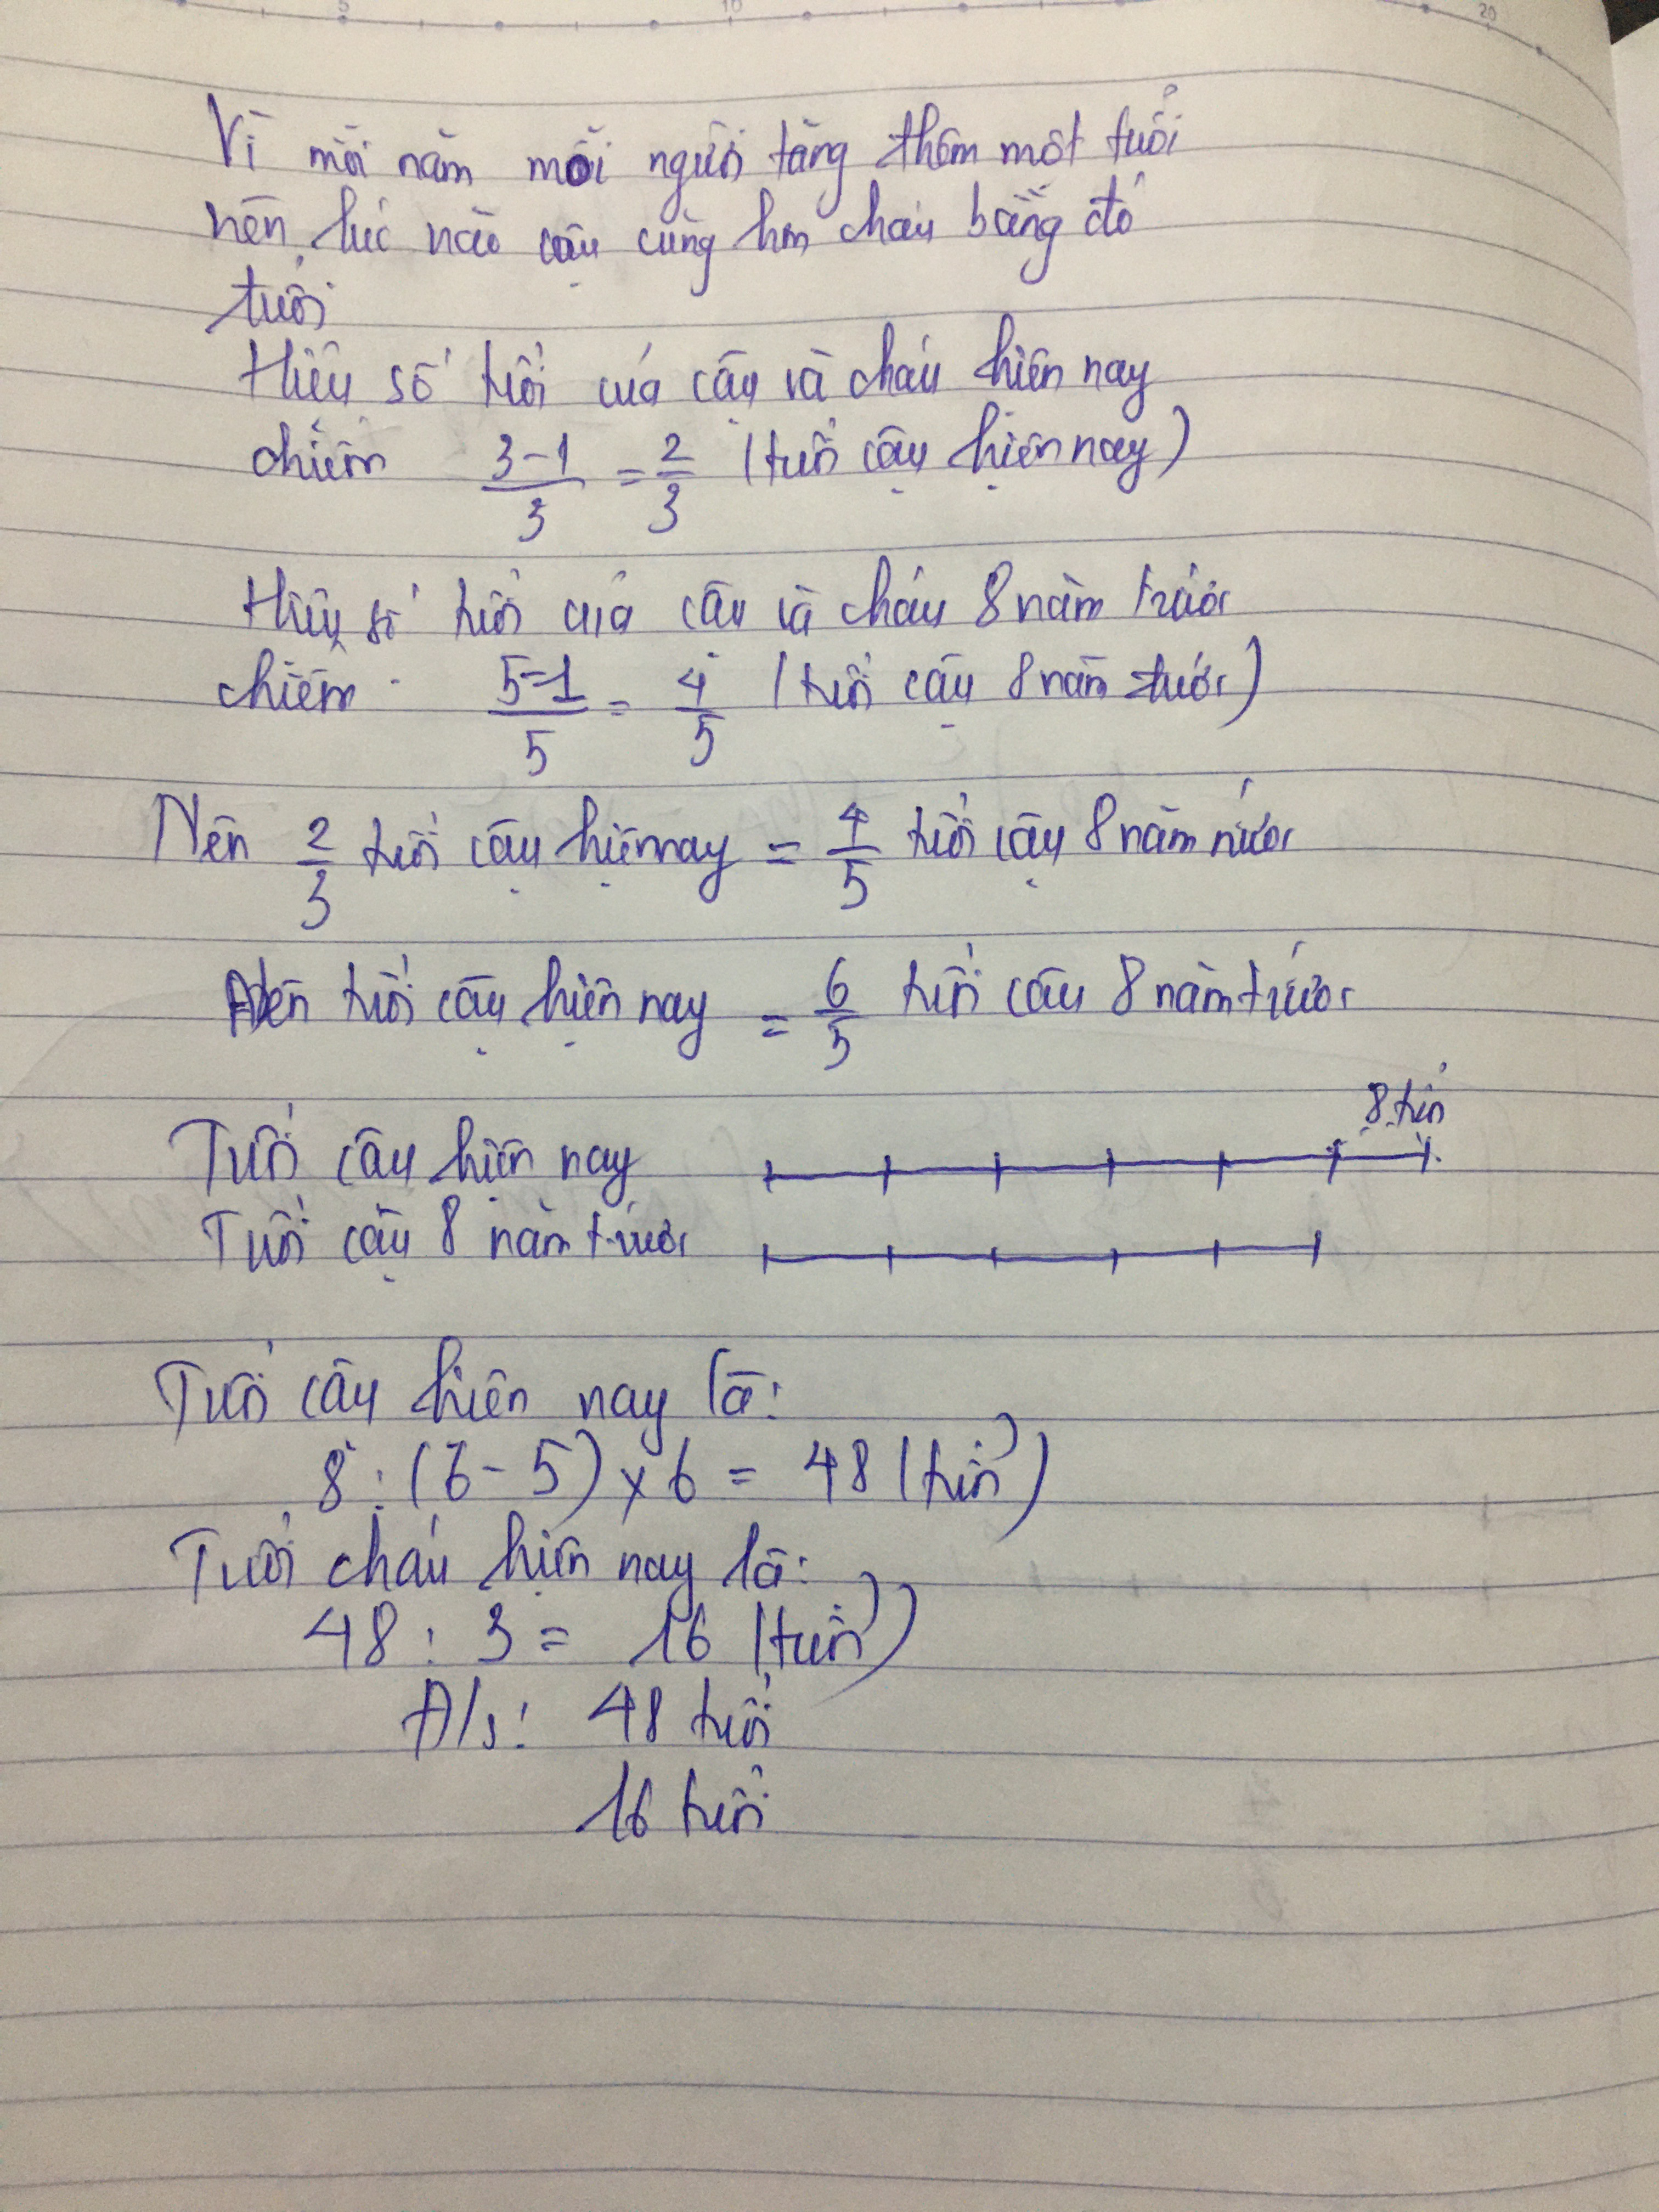 5 10 20
Vì mỗi năm mỗi người tăng thêm một tuổi
nên lúc nào cậu cũng hơn cháu bằng đó
tuổi
Hiệu số tuổi của cậu và cháu hiện nay
chiếm 3-1/3 = 2/3 (tuổi cậu hiện nay)
Hiệu số tuổi của cậu và cháu 8 năm trước
chiếm 5-1/5 = 4/5 (tuổi cậu 8 năm trước)
Nên 2/3 tuổi cậu hiện nay = 4/5 tuổi cậu 8 năm trước
Nên tuổi cậu hiện nay = 6/5 tuổi cậu 8 năm trước
8 tuổi
Tuổi cậu hiện nay
Tuổi cậu 8 năm trước
Tuổi cậu hiện nay là:
8 : (6 - 5) x 6 = 48 (tuổi)
Tuổi cháu hiện nay là:
48 : 3 = 16 (tuổi)
Đ/s: 48 tuổi
16 tuổi